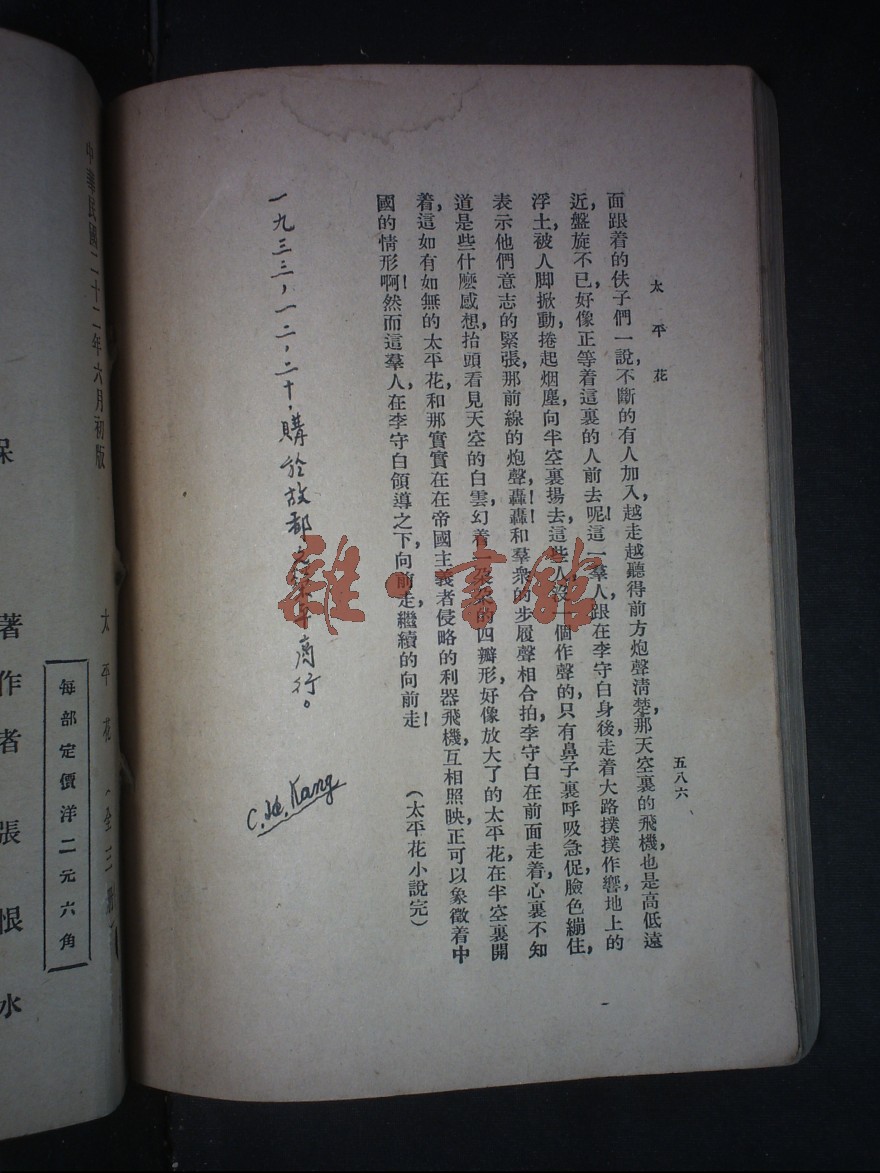 太平花
五八六
面跟着的伕子們一說，不斷的有人加入，越走越聽得前方炮聲清楚，那天空裏的飛機，也是高低遠
近，盤旋不已，好像正等着這裏的人前去呢！這一羣人，跟在李守白身後，走着大路撲撲作響，地上的
浮土，被人脚掀動，捲起烟塵，向半空裏揚去，這些人，沒一個作聲的，只有鼻子裏呼吸急促，臉色繃住，
表示他們意志的緊張，那前線的炮聲，轟！轟！和羣衆的步履聲相合拍，李守白在前面走着，心裏不知
道是些什麽感想，抬頭看見天空的白雲，幻着一朶朶的四瓣形，好像放大了的太平花，在半空裏開
着，這如有如無的太平花，和那實實在在帝國主義者侵略的利器飛機，互相照映，正可以象徵着中
國的情形啊！然而這羣人，在李守白領導之下，向前走，繼續的向前走！
（太平花小說完）
一九三三，一二，二十，購於故都　商行。
C. H. Kang
雜·書館
中華民國二十二年六月初版
太平花（全三
每部定價洋二元六角
著作者　張恨水